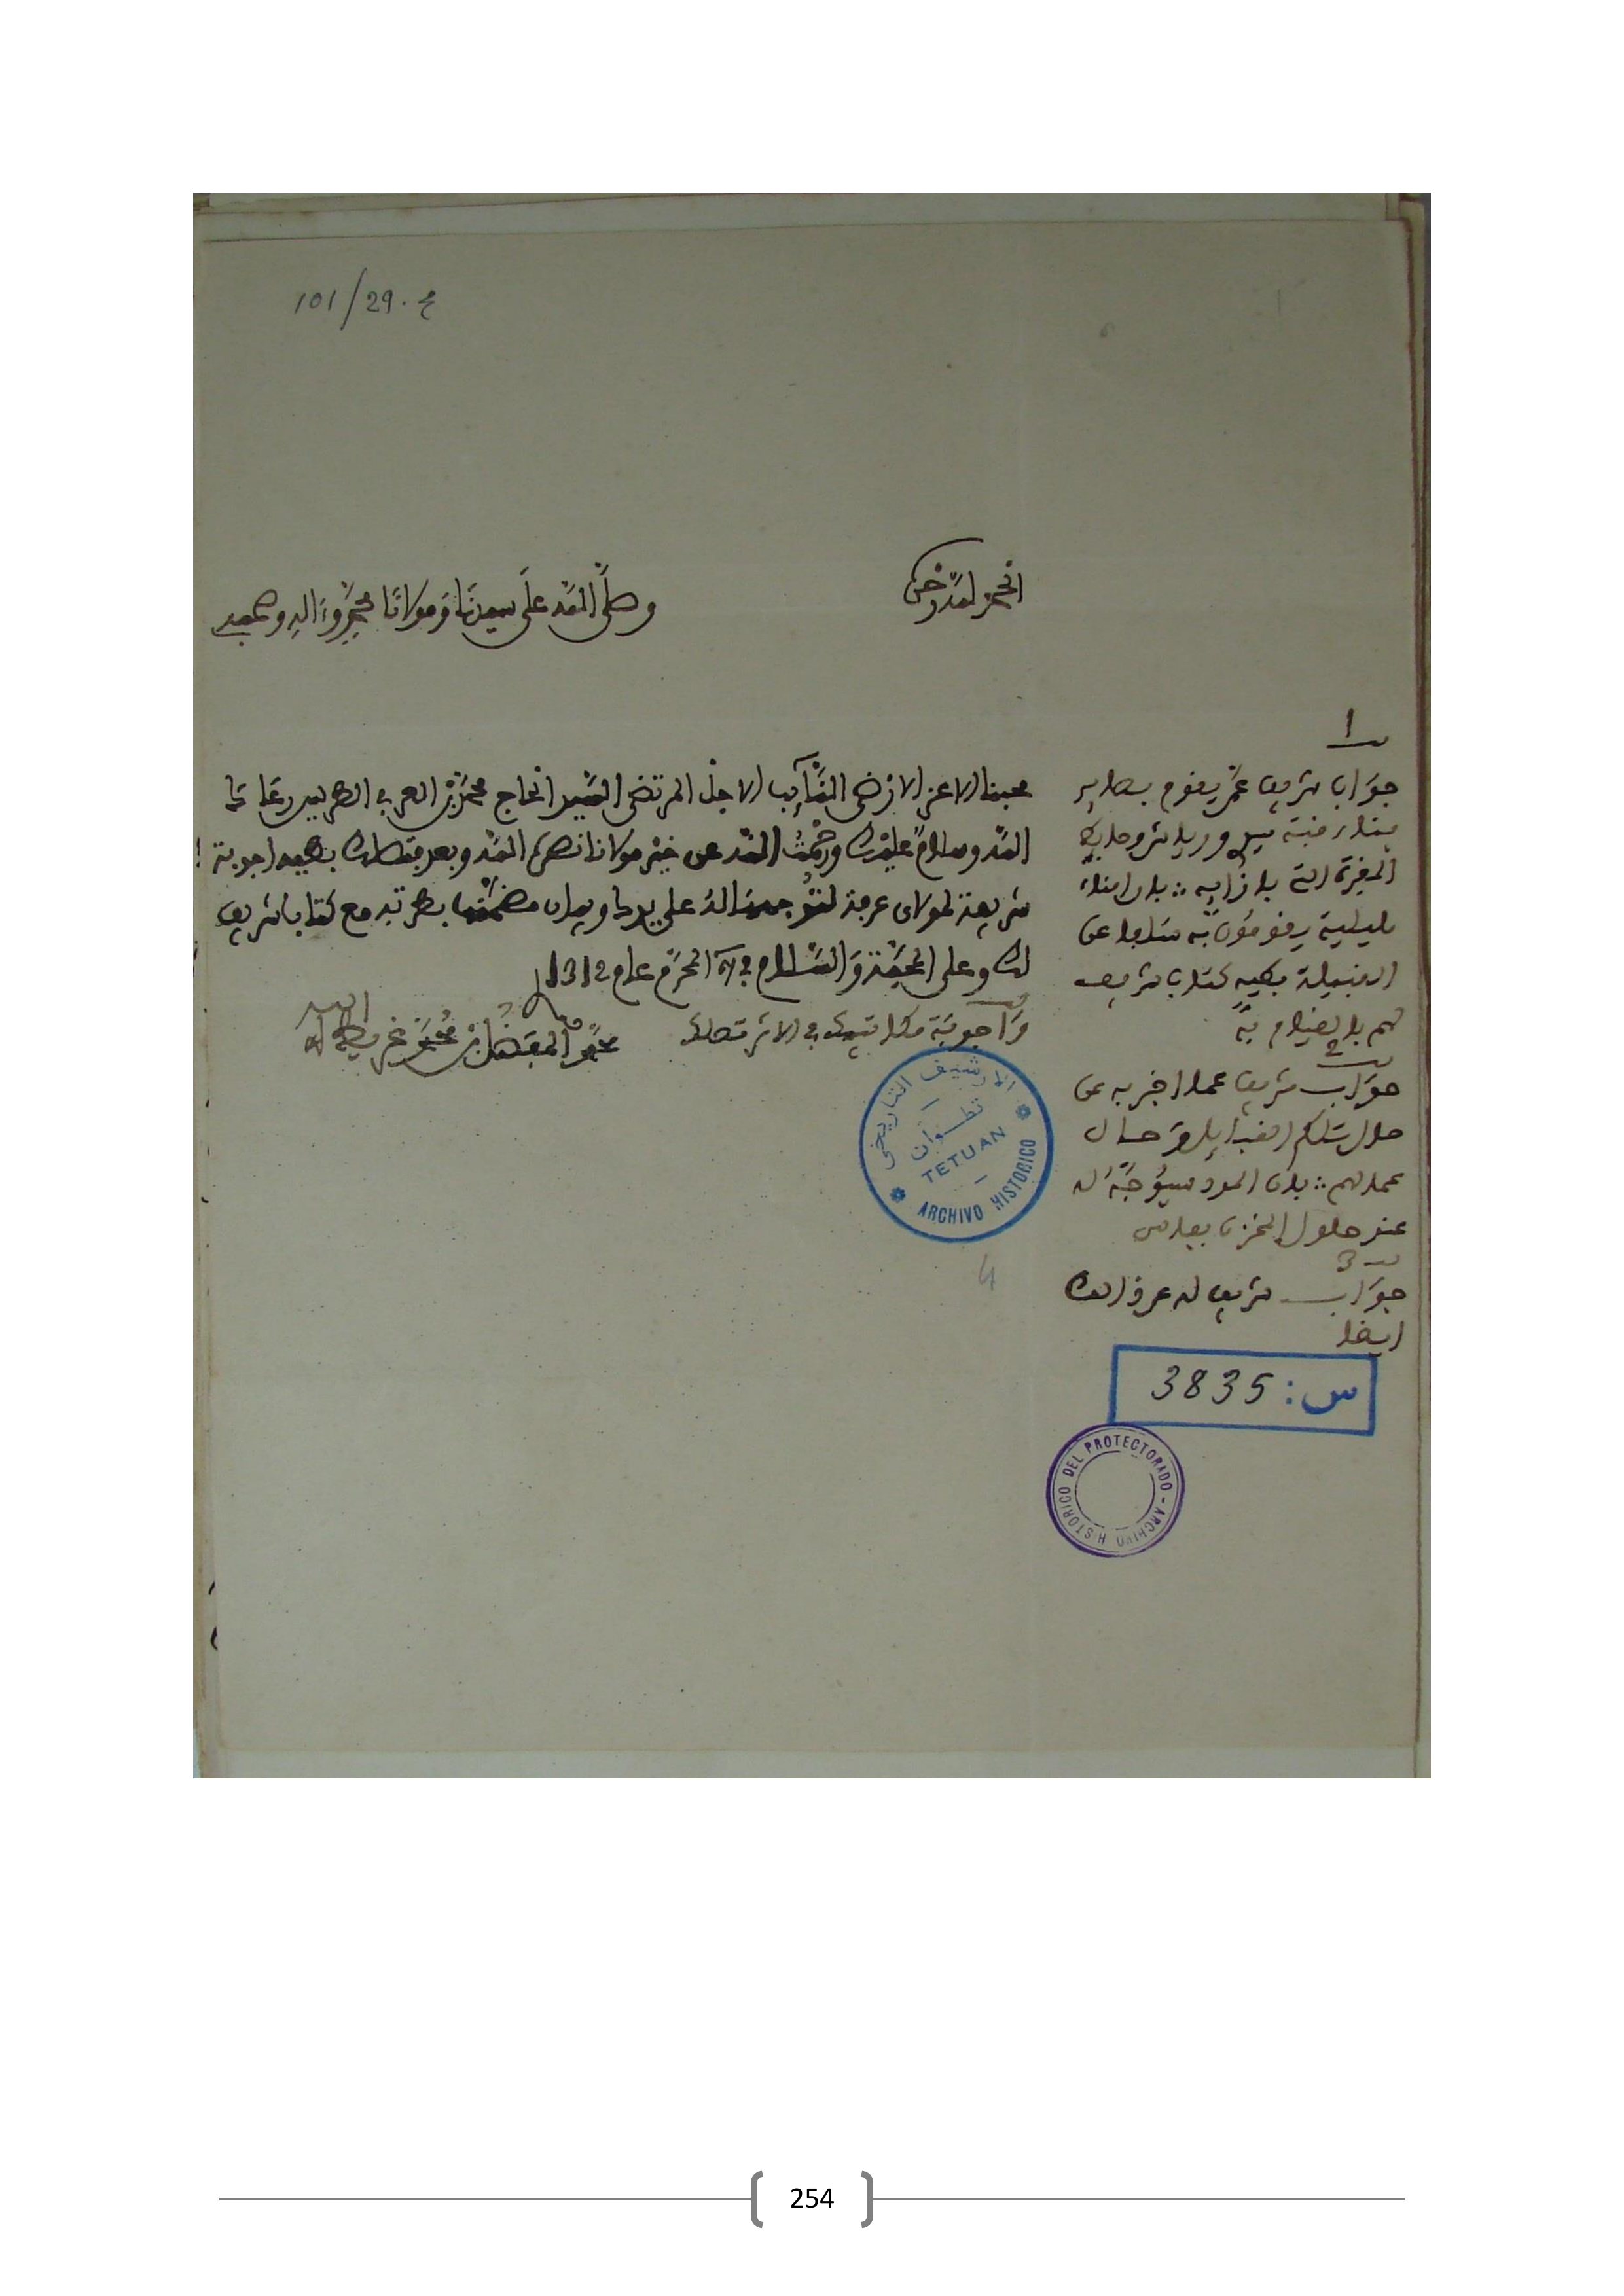 101/29. ع
الحمد لله وحده
وصلى الله على سيدنا ومولانا محمد وءاله وصحبه
محبنا الاعز الارضى النايب الاجل المرتضى السيد الحاج محمد بن العربي الطريس رعاكم
الله وسلام عليك ورحمت الله عن خير مولانا نصره الله وبعد فتصلك بطيه اجوبة
شريفة لمولاي عرفة لتوجه له على يدك وبيان مضمنها بطرته مع كتاب شريف
لك وعلى المحبة والسلام في المحرم عام 131
واجوبة مكاتيبك في الاثر تصلك
محمد المفضل بن محمد غريط لطف الله به
1
جوابا شريفا عما يقوم بصاير
بناء
المفرة التي بازايه بان امناء
مليلية يقومون به سالما عن
القبيلة بطيه كتاب شريف
لهم بالقيام به
2
جواب شريف عما اخبر به عن
حال تلكم القبايل وحال
عمالهم بان المود سيوجه له
عند حلول المخزن بفاس
3
جواب شريف له عن ذلك
ايضا
س: 3835
الارشيف التاريخي
تطوان
TETUAN
ARCHIVO HISTORICO
ARCHIVO HISTORICO DEL PROTECTORADO
4
254